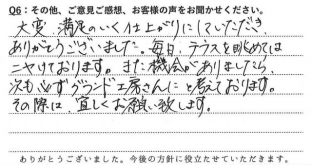 Q6：その他、ご意見ご感想、お客様の声をお聞かせください。
大変 満足のいく仕上がりにしていただき
ありがとうございました。毎日、テラスを眺めては
ニヤけております。また機会がありましたら
次も必ずグランド工房さんにと考えております。
その際は、宜しくお願い致します。
ありがとうございました。今後の方針に役立たせていただきます。